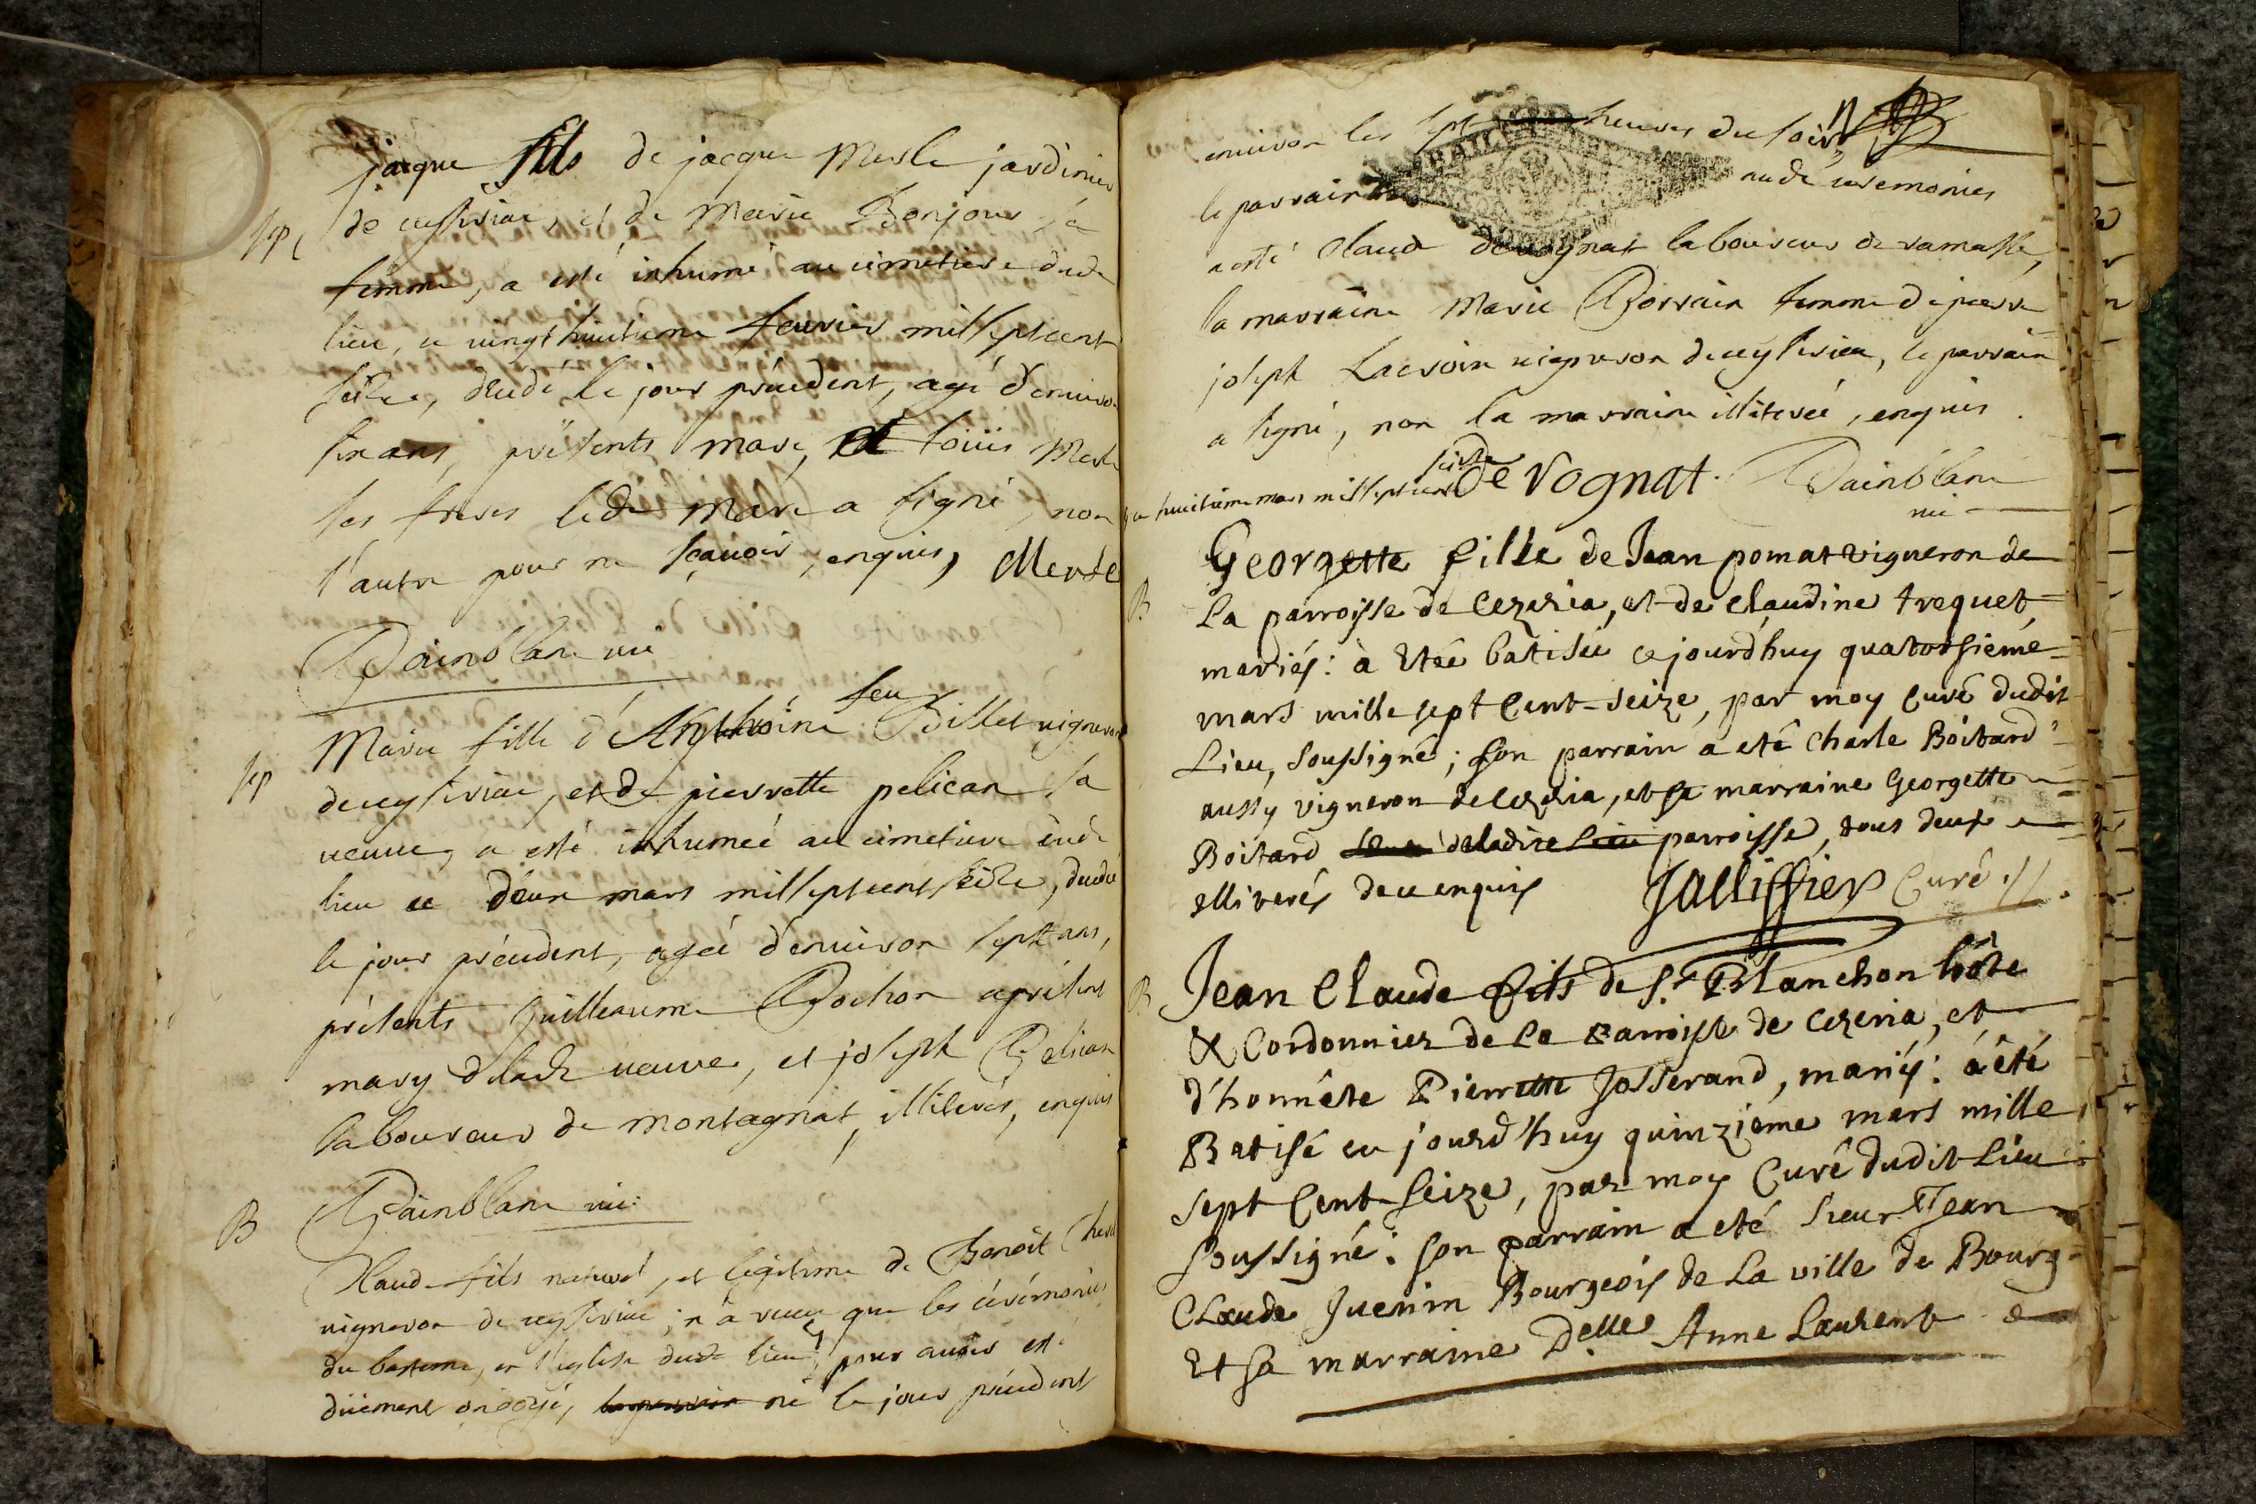 jacque fils de jacque Merle jardinier
Sep de ceyseriac, et de Marie Bonjour sa
femme, a esté inhumé au cimetiere dud.
lieu, ce vingt huitieme fevrier mil septcent
seize, decedé le jour précedent, agé d'environ
six ans, présents Marc, et loüis Merle
ses freres led. Marc a signé, non
l'autre pour ne sçavoir, enquis, Merle
Painblanc vic
feu
Sep Marie fille d'Anthoine Billet vigneron
de ceyseriac, et de pierrette pelican sa
veuve, a esté inhumeé au cimetiere dud.
lieu ce deux mars mil septcent seize, decedé
le jour précedent, ageé d'environ sept ans,
présents Guilleaume Pochon aprésent
mary de lad. veuve, et joseph Pelican
laboureur de montagnat, illiterés, enquis
B Painblanc vic:
Claude fils naturel, et légitime de Benoit
vigneron de ceyseriac, n'a receu que les cérémonies
du bapteme, en l'eglise dud. lieu, pour avoir esté
düement ondoyé, né le jour précedent
environ les sept heures du soir
le parrain aud. ceremonies
a esté Claude devognat laboureur de ramasse,
la marraine Marie Borrain femme de pierre
joseph Lacroix vigneron de ceyseriac, le parrain
a signé, non la marraine illitereé, enquis.
seize
ce huitieme mars mil septcent De Vognat. Painblanc
vic
Georgette fille de Jean pomat vigneron de
B La parroisse de Cezeria, et de Claudine trequet,
mariés: à Etée batisée cejourd'huy quatorsiéme
mars mille sept Cent-seize, par moy Curé dudit
Lieu, Soussigné; son parrain a eté Charle Boitard
aussy vigneron de Cezeria, et sa marraine Georgette
Boitard deladite parroisse, tous deux
illiterés de ce enquis Jalliffier Curé.
B Jean Claude fils de S.r Blanchon hôte
& Cordonnier de la Parroisse de Cezeria, et
d'honnête Pierrette Josserand, mariés: a été
Batisé ce jourd'huy quinzieme mars mille
sept Cent Seize, par moy Curé dudit Lieu
Soussigné: son parrain a eté Sieur Jean
Claude Juenin Bourgeois de La ville de Bourg
Et sa marraine D.elle Anne Laurent